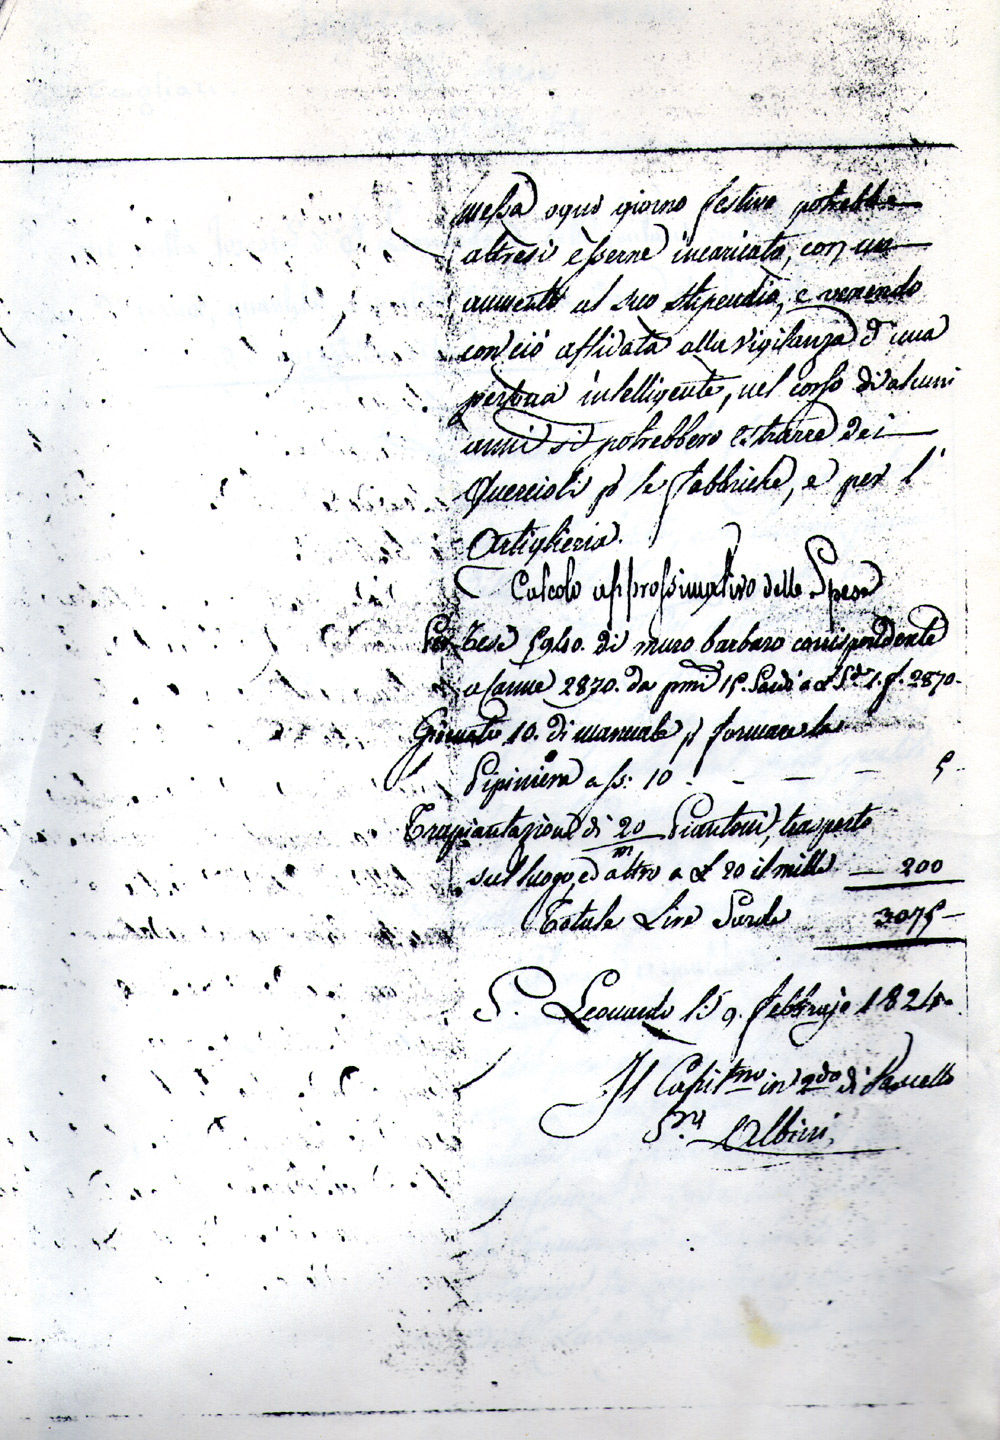 messa ogni giorno festivo potrebbe
altresi esserne incaricata, con un
aumento al suo stipendio, e venendo
con ciò affidata alla vigilanza d'una
persona intelligente, nel corso di alcuni
anni si potrebbero estrarre dei
Quercioli p le fabbriche, e per l'
Artiglieria.
Calcolo approssimativo delle Spese
Per Tese 5940. di muro barbaro corrispondente
a Canne 2870. da 15. Sardi a £ 1. 2870-
Giornate 10. di manuale p formare la
Pipiniera a s: 10 - - - - 5-
Trapiantazione di 20/m Piantoni, trasporto
sul luogo, ed altro a £ 20 il mille — 200
Totale Lire Sarde 3075-
S. Leonardo li 9. febbrajo 1824.
Il Capitno in 2do di Vascello
Albini